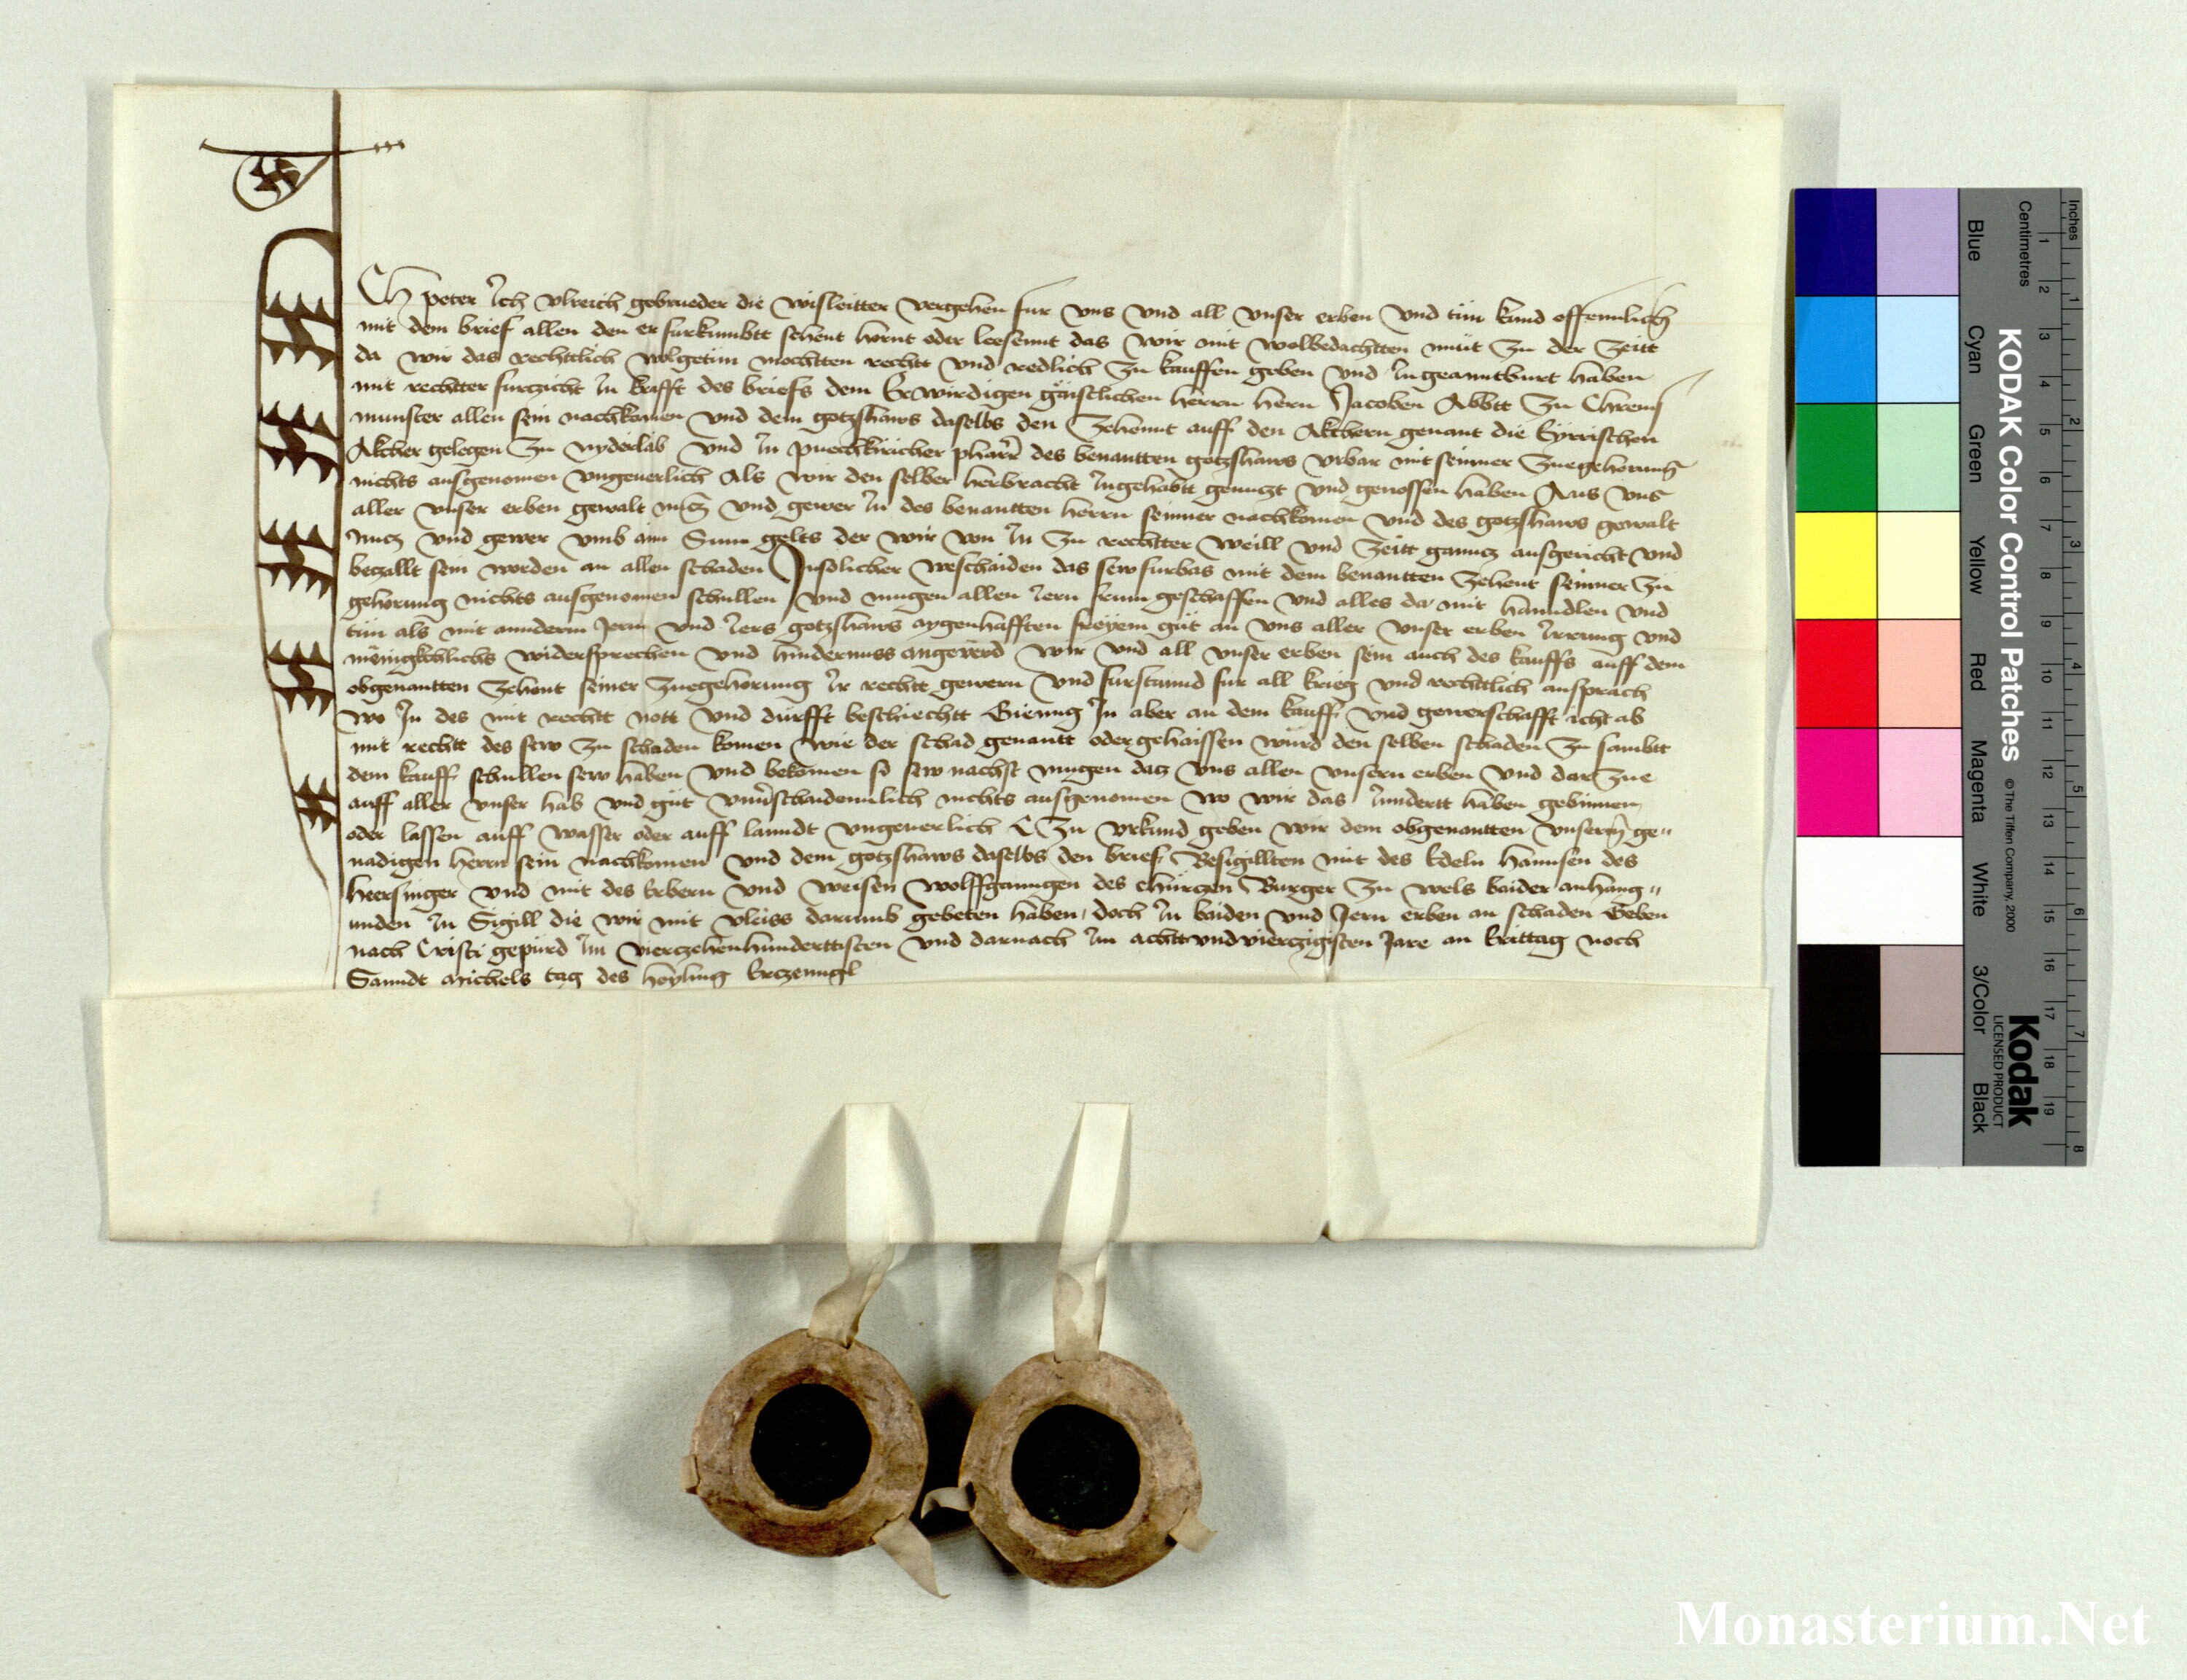 Ich peter Ich Ulreich gebrueder die wisleitter vergehen fur uns und all unser erben und tün kund offennlich
mit dem brief allen den er furkumbtt sehent hornt oder leesennt das wir mit wolbedachtten müt Zu der Zeitt
da wir das rechttlich wolgetün mochtten rechtt und redlich Zu kauffen geben und Ingeanntburt haben
mit rechtter furczicht In krafft des briefs dem Erwirdigen gäistlichen herrn hern Jacoben Abbtt Zu Chrems
munster allen sein nachkomen und dem gotzshaws daselbs den Zehennt auff den Akchern genant die
Akcher gelegen Zu nyderlab und In puechkiricher pharr des benantten gotzshaws urbar mit seinner Zuegehorung
nichts ausgenomen ungeuerlich Als wir den selber herbracht Ingehabtt genuczt und genossen haben Aus uns
aller unser erben gewalt nucz und gewer In des benantten herrn seinner nachkomen und des gotzshaws gewalt
nucz und gewer umb ain Sum gelts der wir von In Zu rechtter weill und Zeitt ganncz ausgericht und
beczallt sein worden an allen schaden In solicher weschaiden das sew furbas mit dem benantten Zehent seinner Zu
gehorung nichts ausgenomen schullen und mugen allen Iern frum geschaffen und alles da mit hanndlen und
tün als mit annderm Jerm und Iers gotzshaws aygenhafften freyem güt an uns aller unser erben Irrung und
mënigkchlichs widersprechen und hindernuss angeverd wir und all unser erben sein auch des kauffs auff dem
obgenantten Zehent seiner Zuegehorung Ir rechtt gewern und furstannd fur all krieg und rechttlich ansprach
wo In des mit rechtt nott und dürfft beschiechtt Gienng In aber an dem kauff und gewerschafft icht ab
mit rechtt des sew Zu schaden komen wie der schad genantt oder gehaissen würd den selben schaden Zu sambtt
dem kauff schullen sew haben und bekomen so sew nachst mugen dacz uns allen unsern erben und dar Zue
auff aller unser hab und güt unverschaidennlich nichts ausgenomen wo wir das Inndertt haben gebinnen
oder lassen auff wasser oder auff lanndt ungeuerlich Zu urkund geben wir dem obgenantten unserm ge„
nadigen herrn sein nachkomen und dem gotzshaws daselbs den brief Besigillten mit des Edeln hannsen des
heersinger und mit des Erbern und weisen wolffganngen des chürczen Burger Zu wels baider anhang„
unden In Sigill die wir mit vleiss darumb gebeten haben doch In baiden und Jern erben an schaden Geben
nach Cristi gepürd Im vierczehenhunderttisten und darnach Im achttundvierczigisten Jare an Erittag noch
Sanndt Michels tag des heyling Erczenngl
KODAK Color Control Patches © The Tiffen Company, 2000
Kodak
LICENSED PRODUCT
Blue Cyan Green Yellow Red Magenta White 3/Color Black
Centimetres 1 2 3 4 5 6 7 8 9 10 11 12 13 14 15 16 17 18 19
Inches 1 2 3 4 5 6 7 8
Monasterium.Net